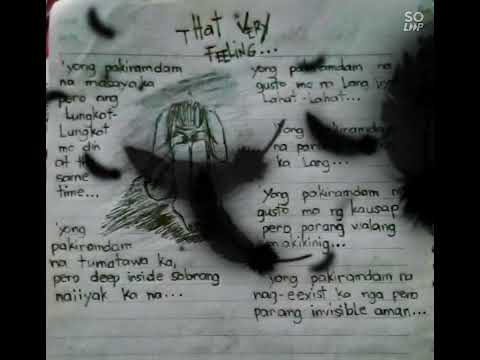 THAT VERY
FEELING...
'yong pakiramdam
na masaya ka
pero ang
Lungkot-
Lungkot
mo din
at the
same
time...
'yong
pakiramdam
na tumatawa ka,
pero deep inside sobrang
naiiyak ka na...
yong pakiramdam na
gusto mo na lang
Lahat-Lahat...
Yong pakiramdam
na
ka Lang...
Yong pakiramdam
gusto mo ng kausap
pero parang walang
makikinig...
yong pakiramdam na
nag-eexist ka nga pero
parang invisible aman...
SO
LOOP